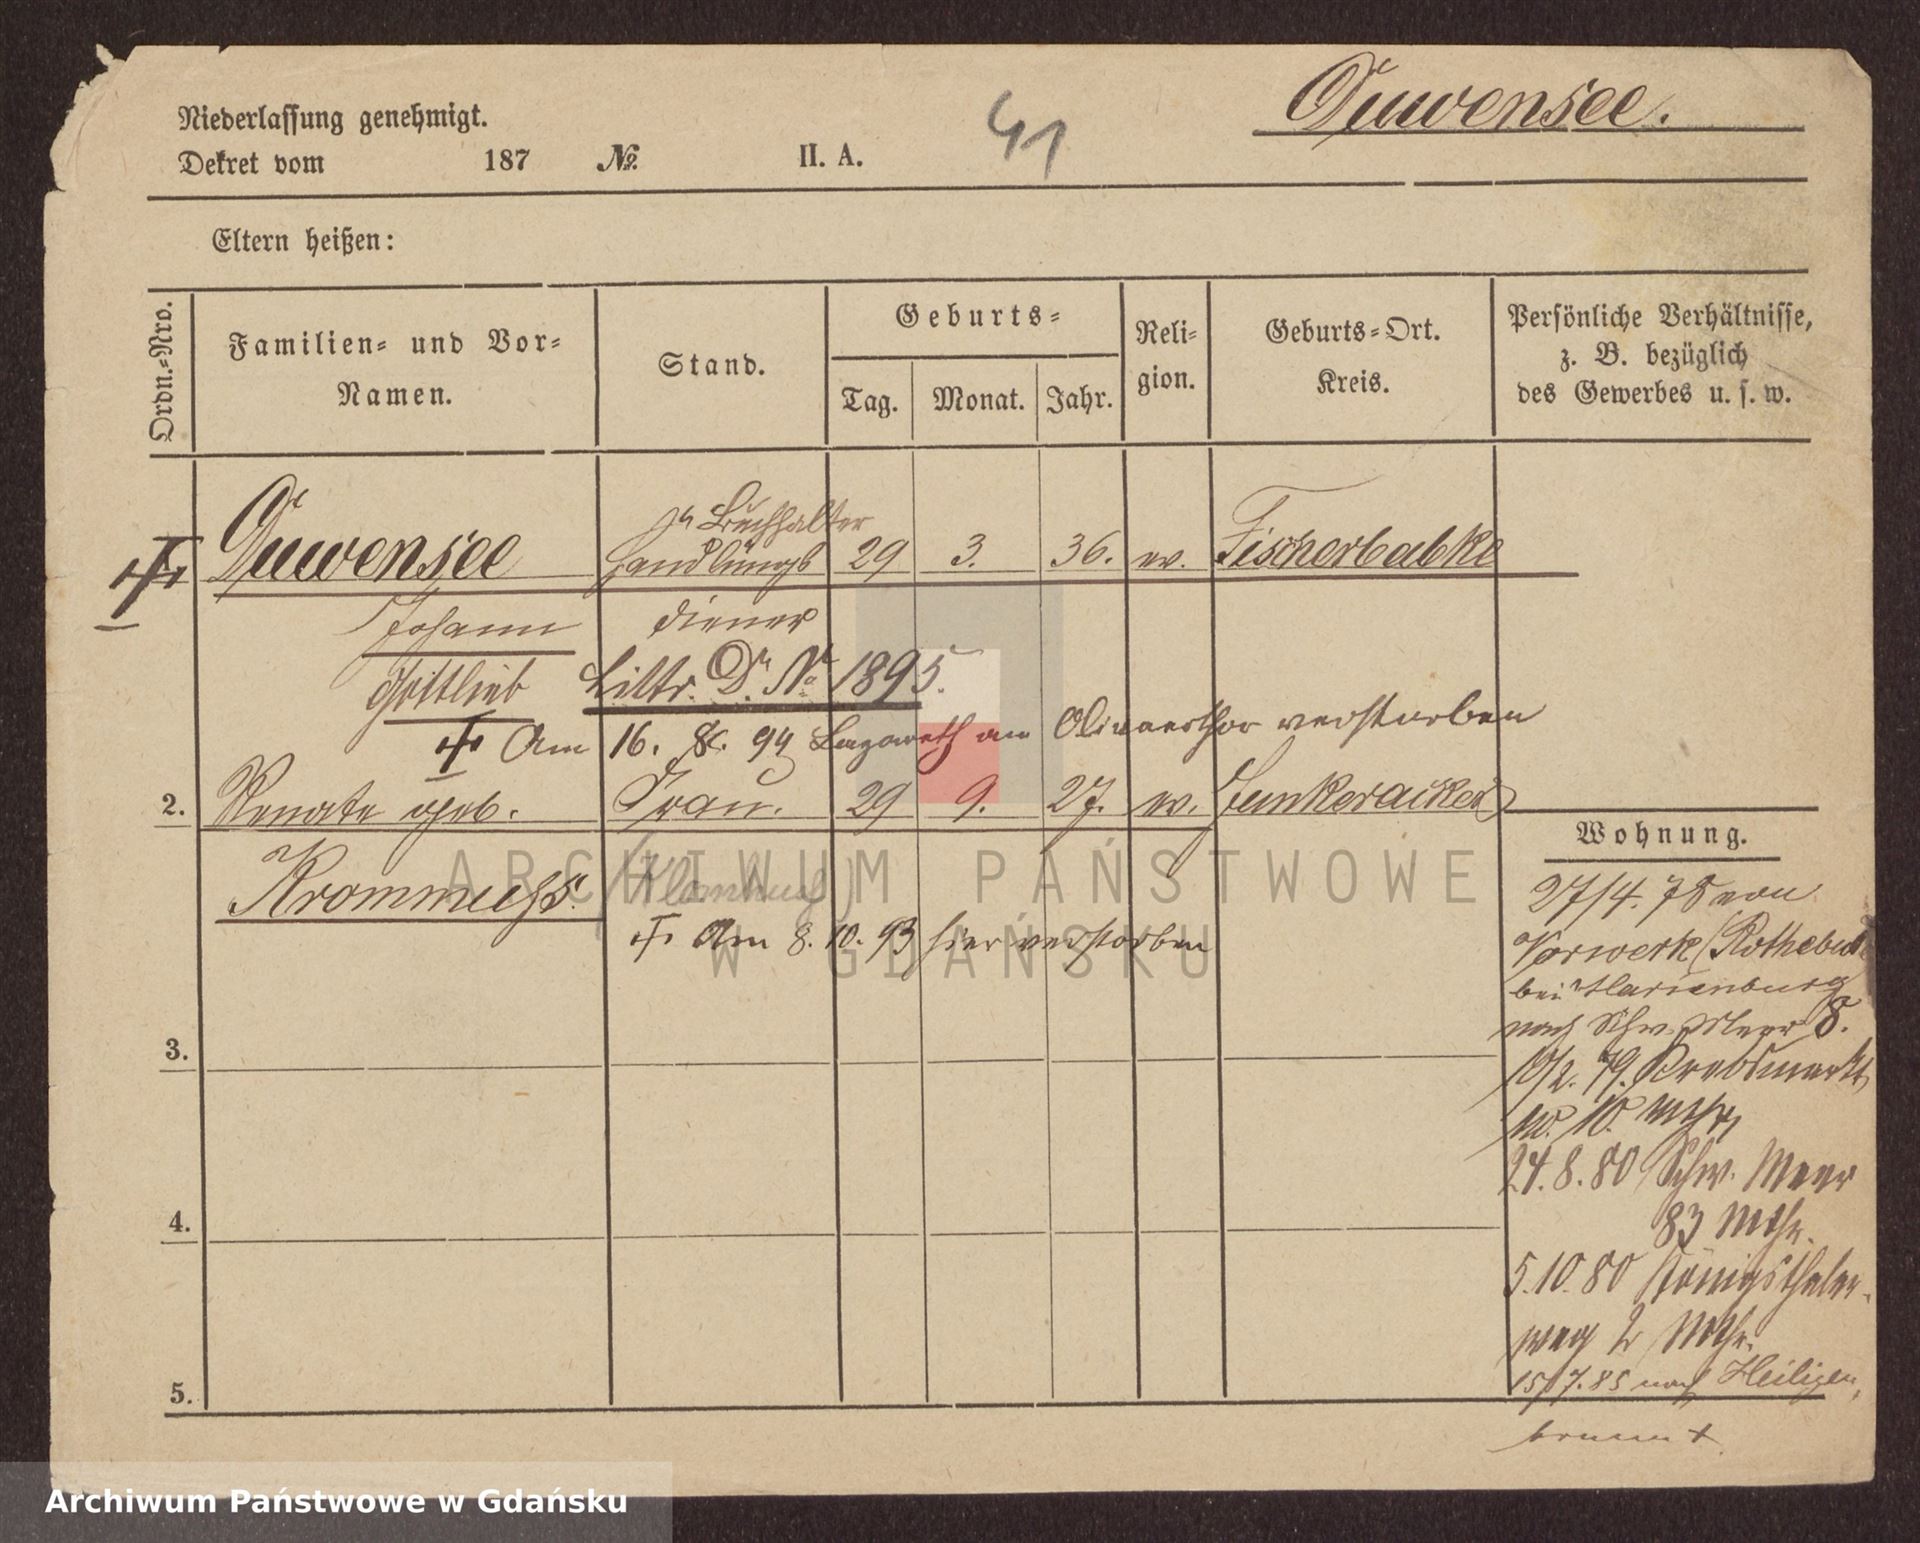 Duwensee.
Niederlassung genehmigt.
41
Dekret vom 187 No. II. A.
Eltern heißen:
Ordn.-Nro.
Familien- und Vor-
Namen.
Stand.
Geburts-
Tag. Monat. Jahr.
Reli-
gion.
Geburts-Ort.
Kreis.
Persönliche Verhältnisse,
z. B. bezüglich
des Gewerbes u. s. w.
Buchhalter
Duwensee Handlungs 29 3. 36. ev. Fischerbabke
Johann diener
Gottlieb Littr. D. No 1895.
Am 16. 94 Lazareth am Olivaerthor verstorben
2. Renate geb. Frau. 29 9. 27. ev. Junkeracker
Krommuhs.
Am 8. 10. 93 hier verstorben
Wohnung.
27/4. 78 von
Vorwerk
bei Marienburg
nach Schw. Meer 8.
10/2. 79.
no. 10.
24. 8. 80 Schw. Meer
83
5. 10. 80 Königsthaler-
weg 2
15/7. 85 nach Heiligen
brunn
3.
4.
5.
ARCHIWUM PAŃSTWOWE
W GDAŃSKU
Archiwum Państwowe w Gdańsku